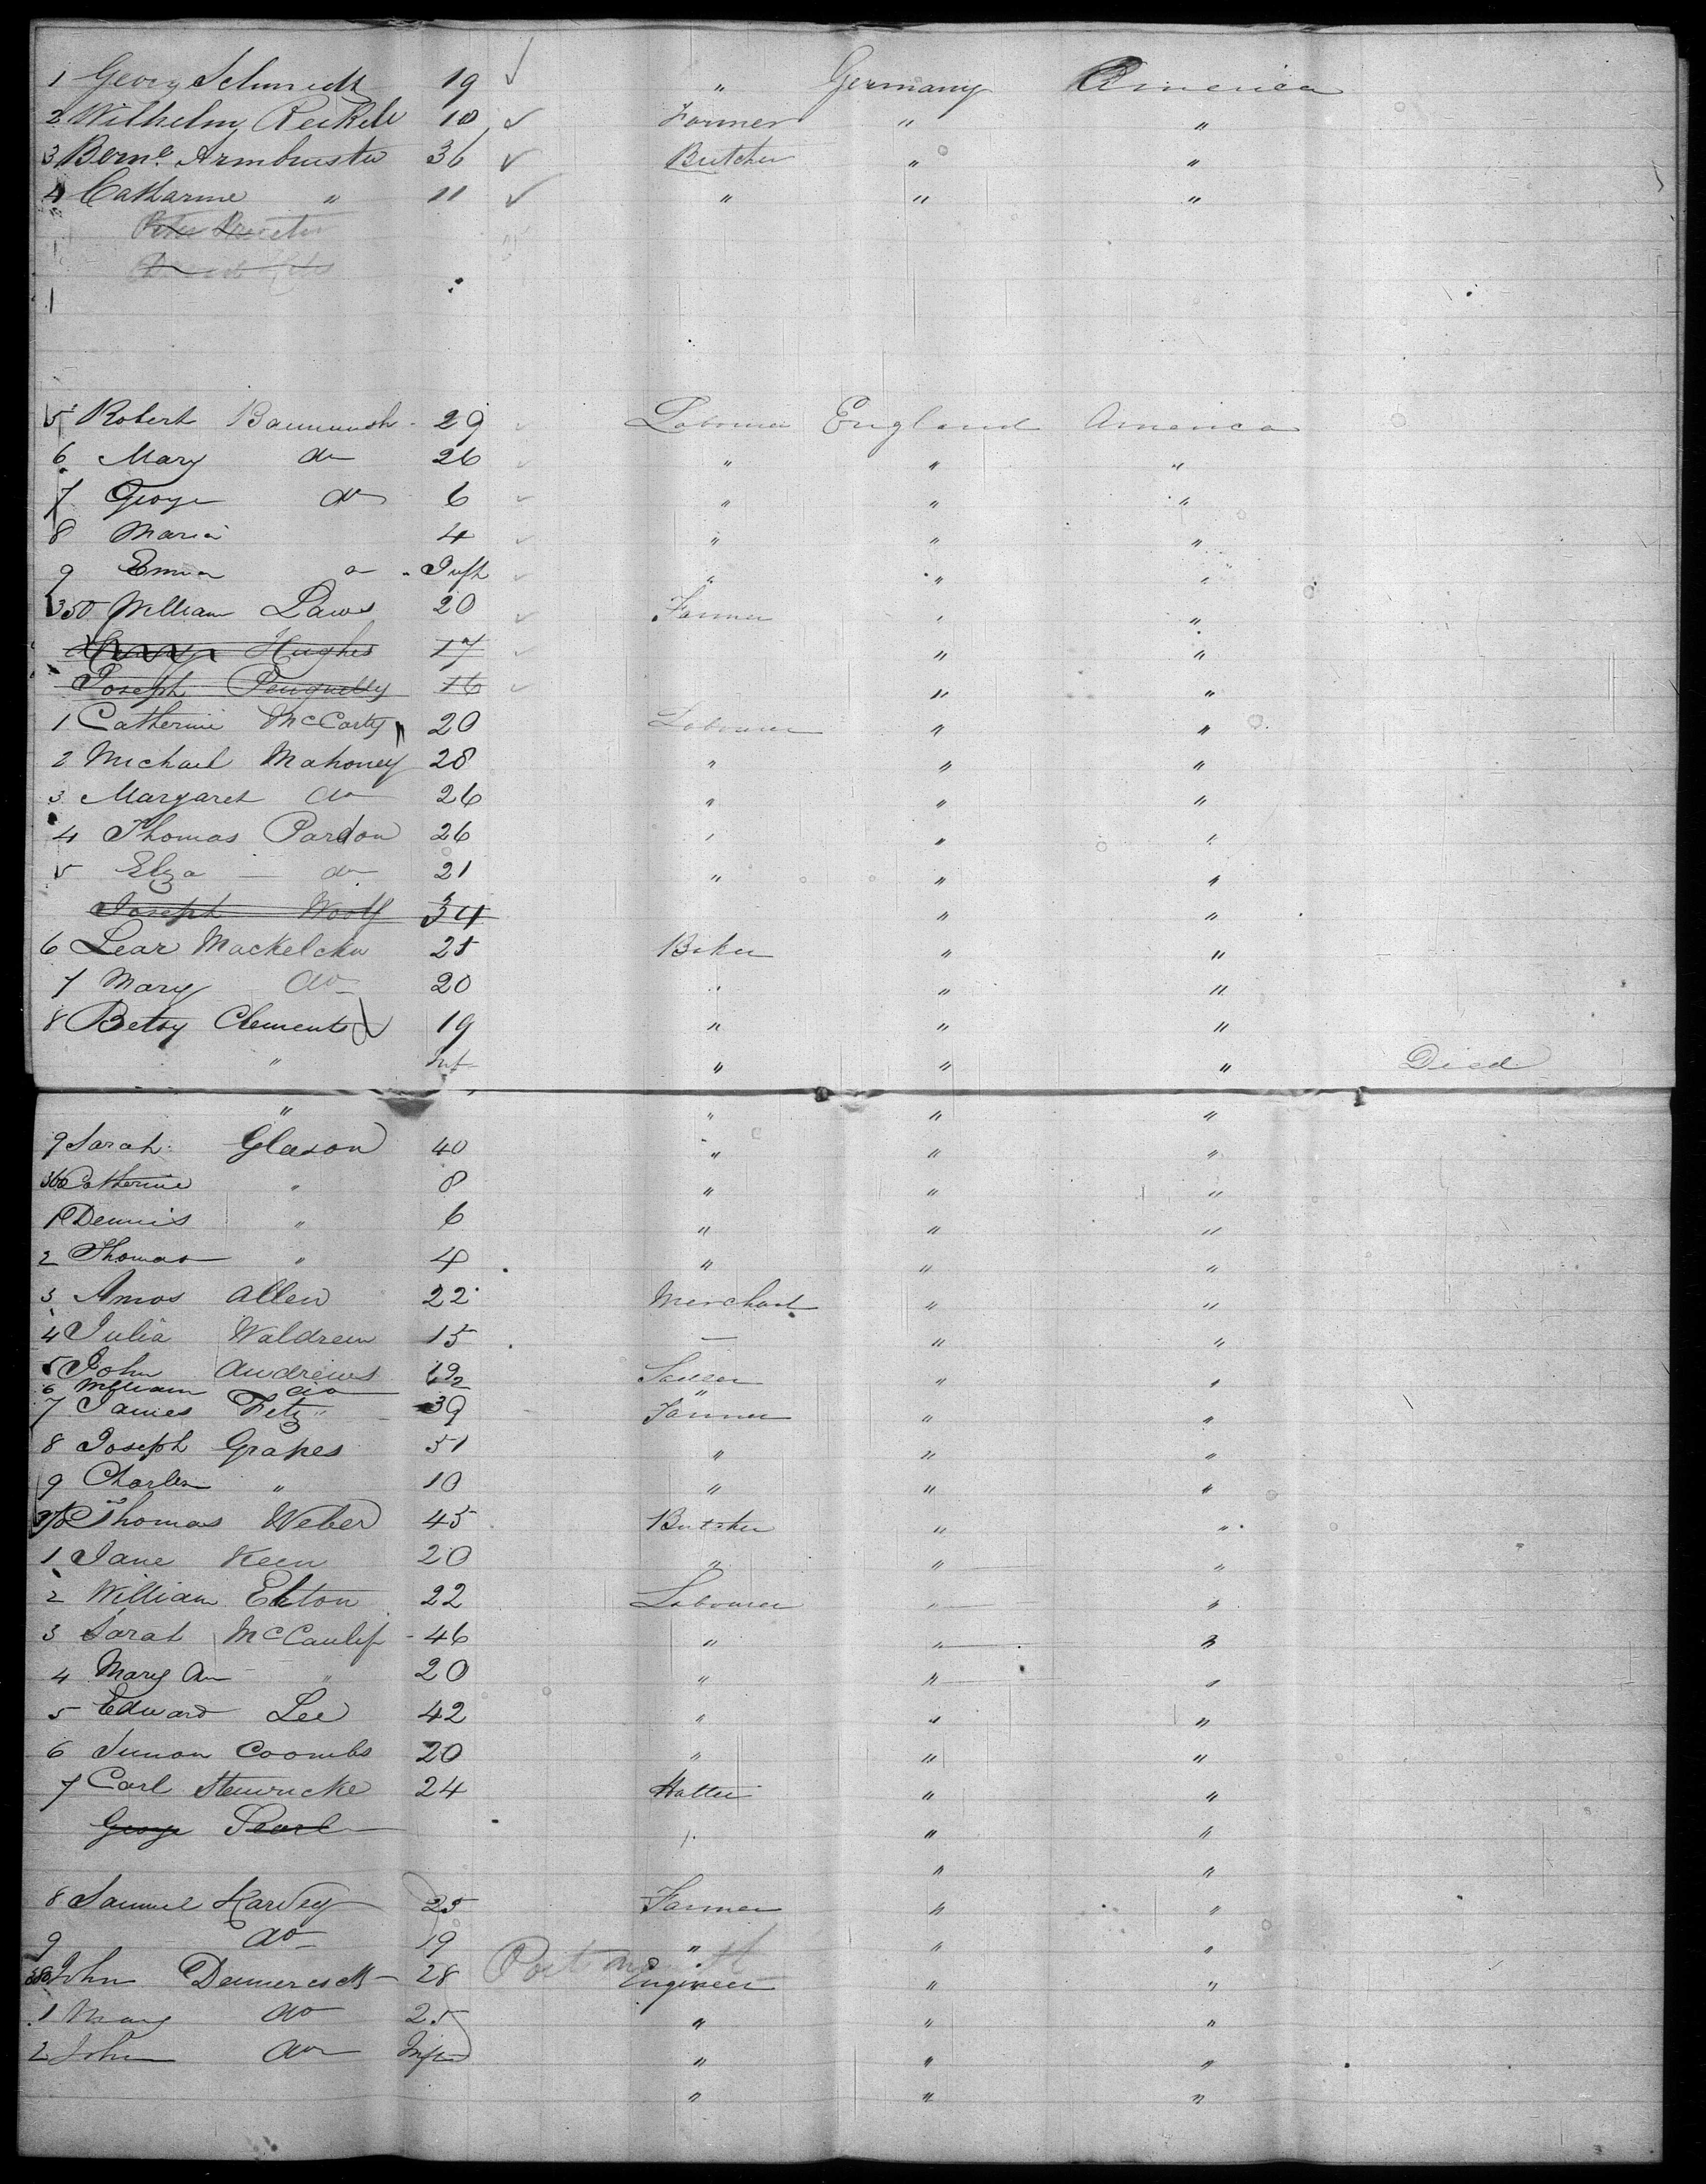 1 Georg Schmidt 19 " Germany America
2 Wilhelm 18 Farmer " "
3 Bern.e Armbruster 36 Butcher " "
4 Catharine " 11 " " "
1
5 Robert 29 Labourer England America
6 Mary do 26 " " "
7 George do 6 " " "
8 Maria 4 " " "
9 Emma Inft " " "
350 William Laws 20 Farmer " "
Hughes 17 " "
Joseph Penguelly 16 " "
1 Catherine McCarty 20 Labourer " "
2 Michael Mahoney 28 " " "
3 Margaret do 26 " " "
4 Thomas Pardon 26 " " "
5 Elza do 21 " " "
Joseph Woolf 34 " "
6 Lear 25 Baker " "
7 Mary do 20 " " "
8 Betsy Clements 19 " " "
" Inf " " " Died
" " " "
9 Sarah Gleason 40 " " "
360 Catherine " 8 " " "
1 Dennis " 6 " " "
2 Thomas " 4 " " "
3 Amos Allen 22 Merchant " "
4 Julia Waldren 15 — " "
5 John Andrews 19 " "
6 William do "
7 James 39 Farmer " "
8 Joseph Grapes 51 " " "
9 Charles " 10 " " "
370 Thomas Weber 45 Butcher " "
1 Jane Keen 20 " " "
2 William 22 Labourer " "
3 Sarah McCaulif 46 " " "
4 Mary Ann " 20 " " "
5 Edward Lee 42 " " "
6 Coombs 20 " " "
7 Carl 24 Hatter " "
George Searl " "
" "
8 Samuel Harvey 25 Farmer " "
9 do 19 " " "
380 John 28 Engineer " "
1 Mary do 25 " " "
2 John do Infn " " "
" " "